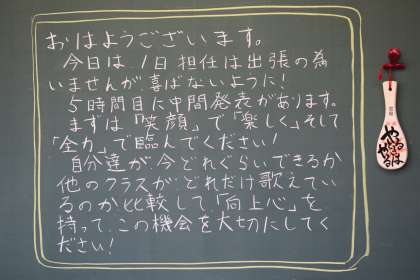 おはようございます。
今日は、1日担任は出張の為
いませんが、喜ばないように!
5時間目に中間発表があります。
まずは「笑顔」で「楽しく」そして
「全力」で臨んでください!
自分達が今どれぐらいできるか
他のクラスがどれだけ歌えてい
るのか比較して「向上心」を
持って、この機会を大切にしてく
ださい!